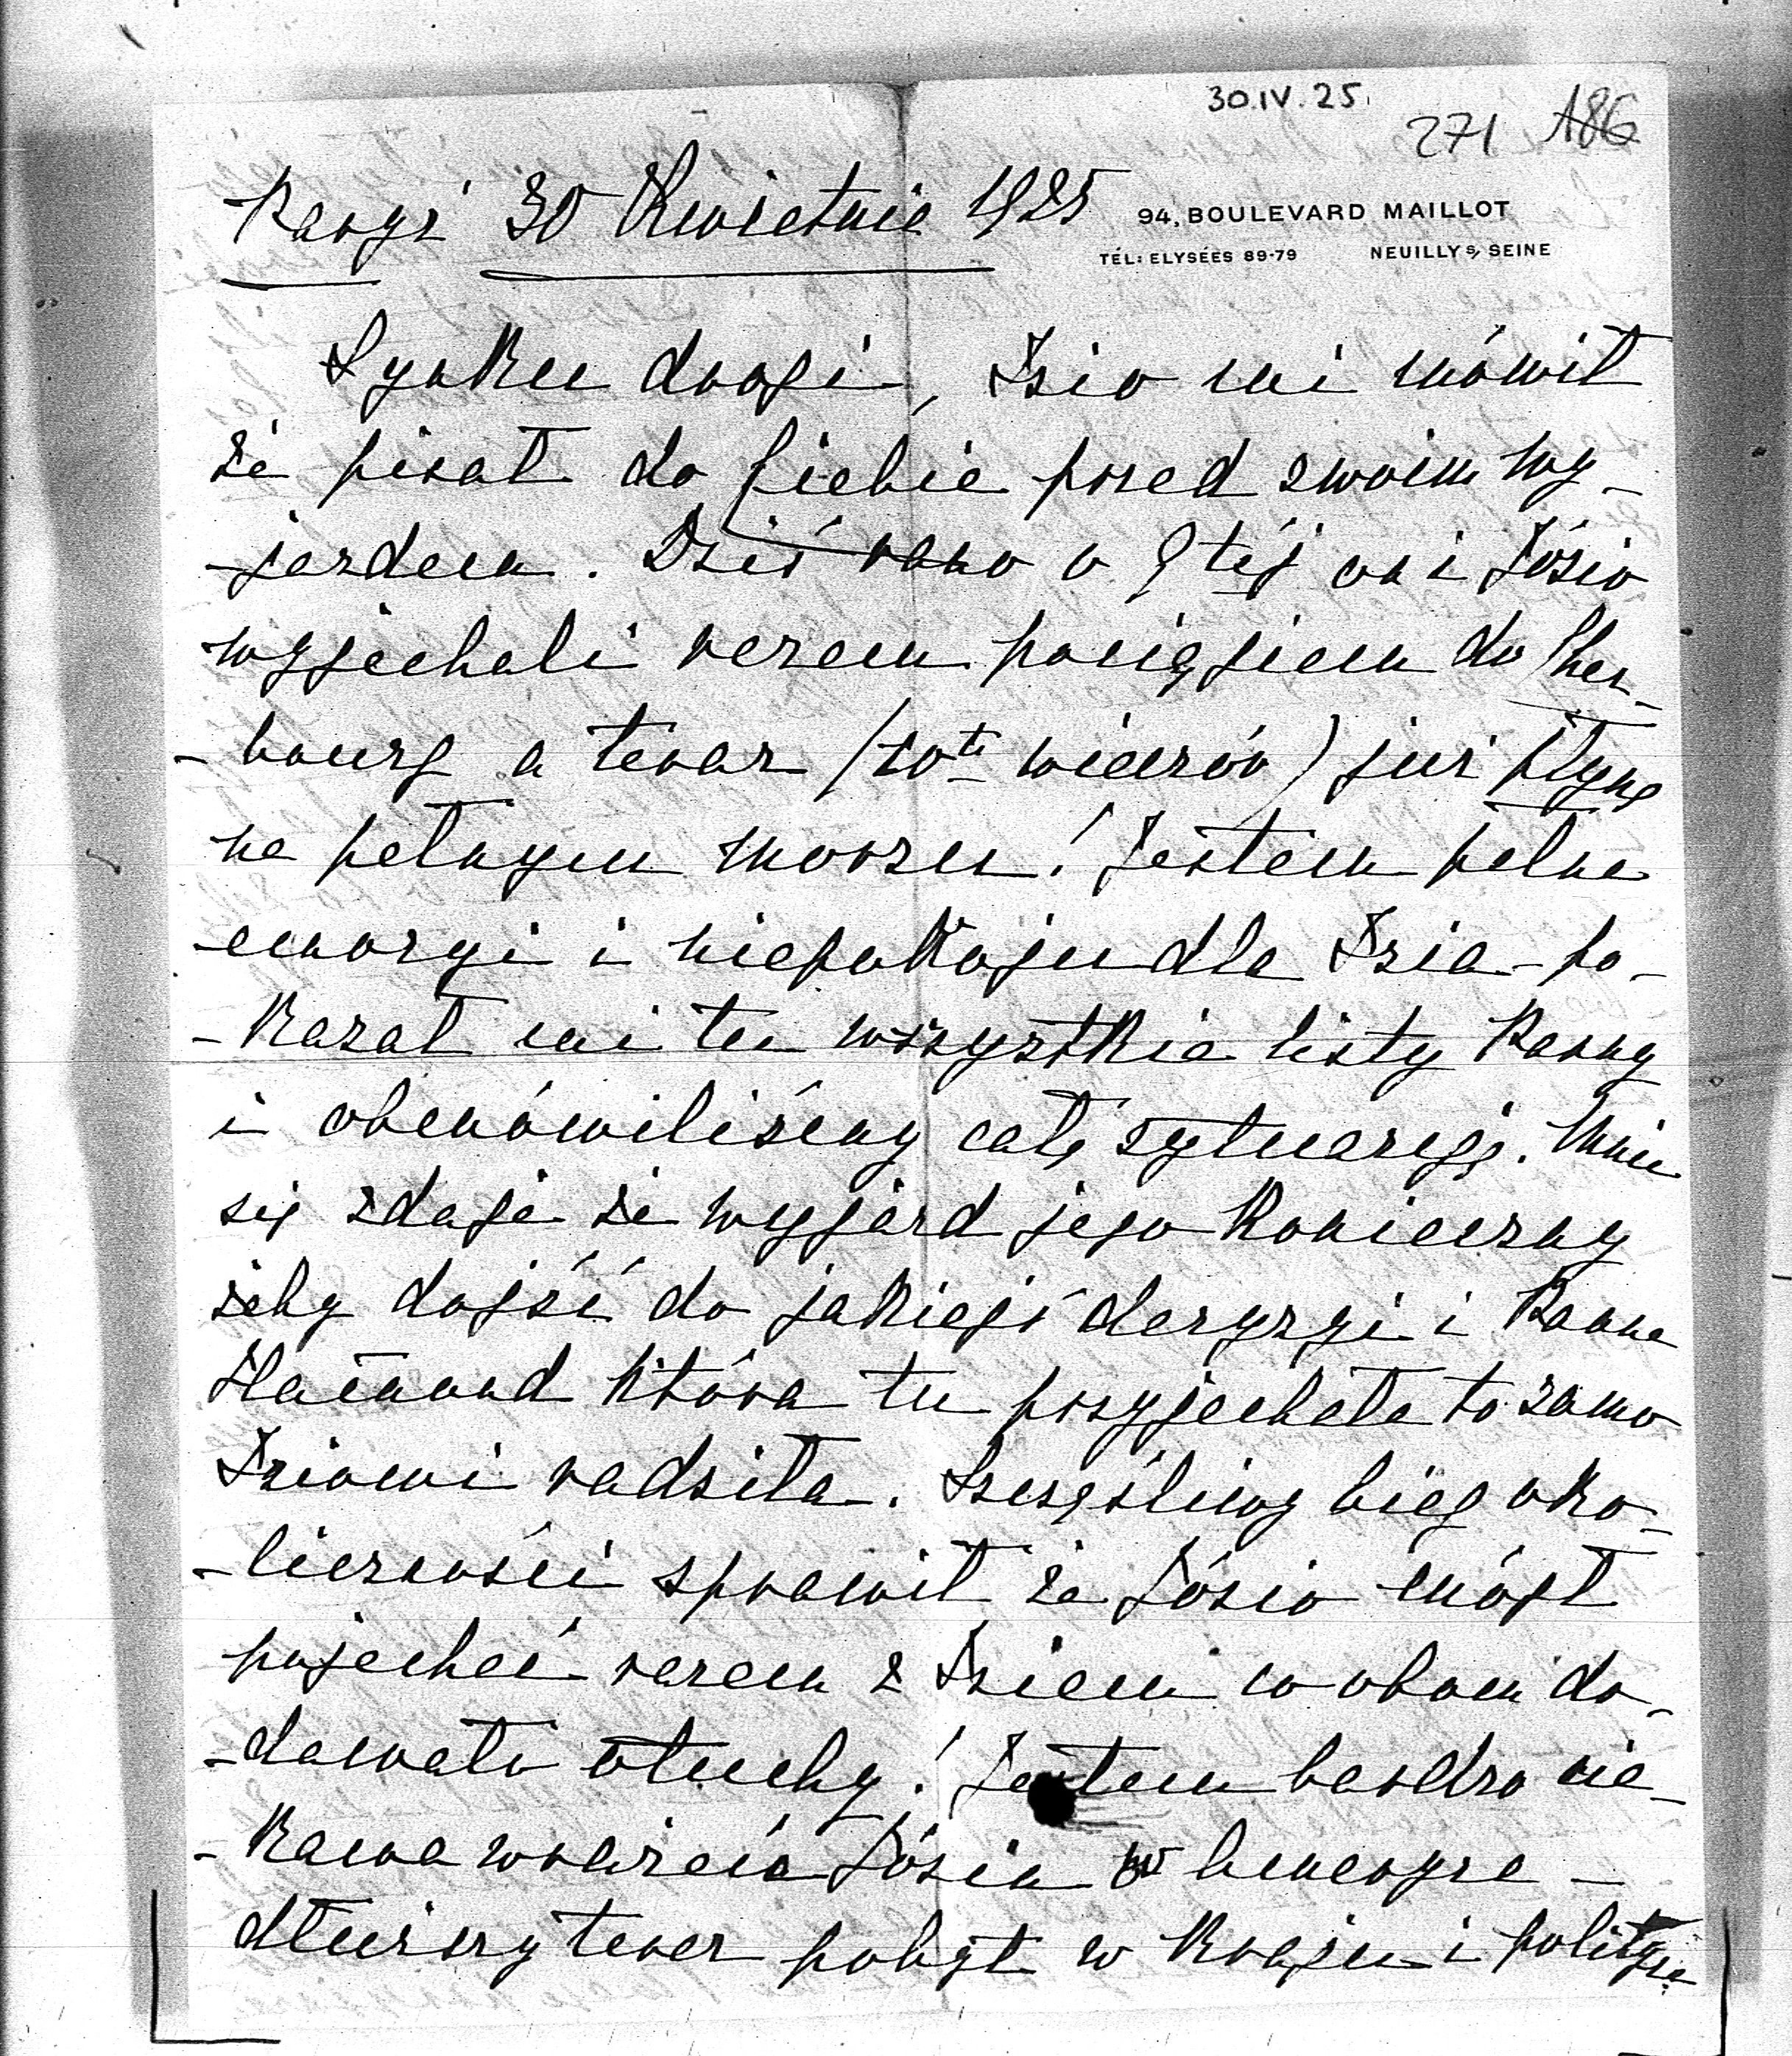 30.IV.25.
271 186
Paryż 30 Kwietnia 1925
94, BOULEVARD MAILLOT
TÉL: ELYSÉES 89-79 NEUILLY S/ SEINE
Synku drogi, Izio mi mówił
że pisał do Ciebie przed swoim wy-
-jazdem. Dziś rano o 9tej on i Józio
wyjechali razem pociągiem do Cher-
-bourg a teraz (10ta wieczór) już płyną
na pełnym morzu! Jestem pełna
emozyi i niepokoju dla Izia - po-
-kazał mi tu wszystkie listy Panny
i obmówiliśmy całą sytuazyę. Mnie
się zdaje że wyjazd jego konieczny
żeby dojść do jakiejś decyzyi i Panna
która tu przyjechała to samo
Iziowi radziła. Szczęśliwy bieg oko-
-liczności sprawił że Józio mógł
pojechać razem z Iziem w obom do-
-dawało otuchy! Jestem bardzo cie-
-kawa wrażeń Józia w Ameryce -
dłuższy teraz pobyt w kraju i polityka